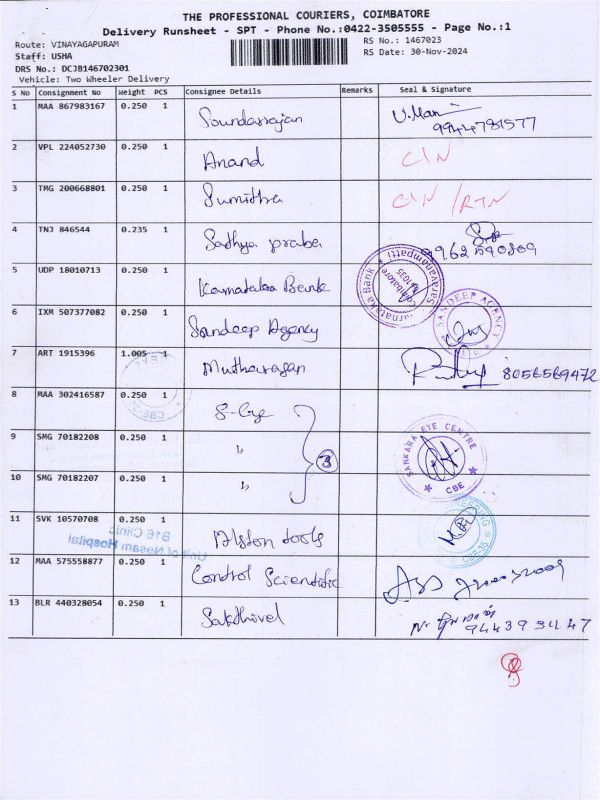 THE PROFESSIONAL COURIERS, COIMBATORE
Delivery Runsheet - SPT - Phone No.:0422-3505555 - Page No.:1
Route: VINAYAGAPURAM
Staff: USHA
DRS No.: DCJB146702301
Vehicle: Two Wheeler Delivery
RS No.: 1467023
RS Date: 30-Nov-2024
S No Consignment No Weight PCS Consignee Details Remarks Seal & Signature
1 MAA 867983167 0.250 1 Soundarrajan 9944781577
2 VPL 224052730 0.250 1 Anand C/N
3 TMG 200668801 0.250 1 Sumithra C/N /RTN
4 TNJ 846544 0.235 1 Sathya praba
5 UDP 18010713 0.250 1 Karnataka Bank
Karnataka Bank Saravanampatti Coimbatore
6 IXM 507377082 0.250 1 Sandeep Agency
SANDEEP AGENCY
7 ART 1915396 1.005 1 8056569472
8 MAA 302416587 0.250 1
9 SMG 70182208 0.250 1 " 3
10 SMG 70182207 0.250 1 "
SANKARA EYE CENTRE CBE
11 SVK 10570708 0.250 1 Alston tools
CBE-35
B16 Clinic
Unit of Nassam Hospital
12 MAA 575558877 0.250 1 Control Scientific
13 BLR 440328054 0.250 1 Sakthivel